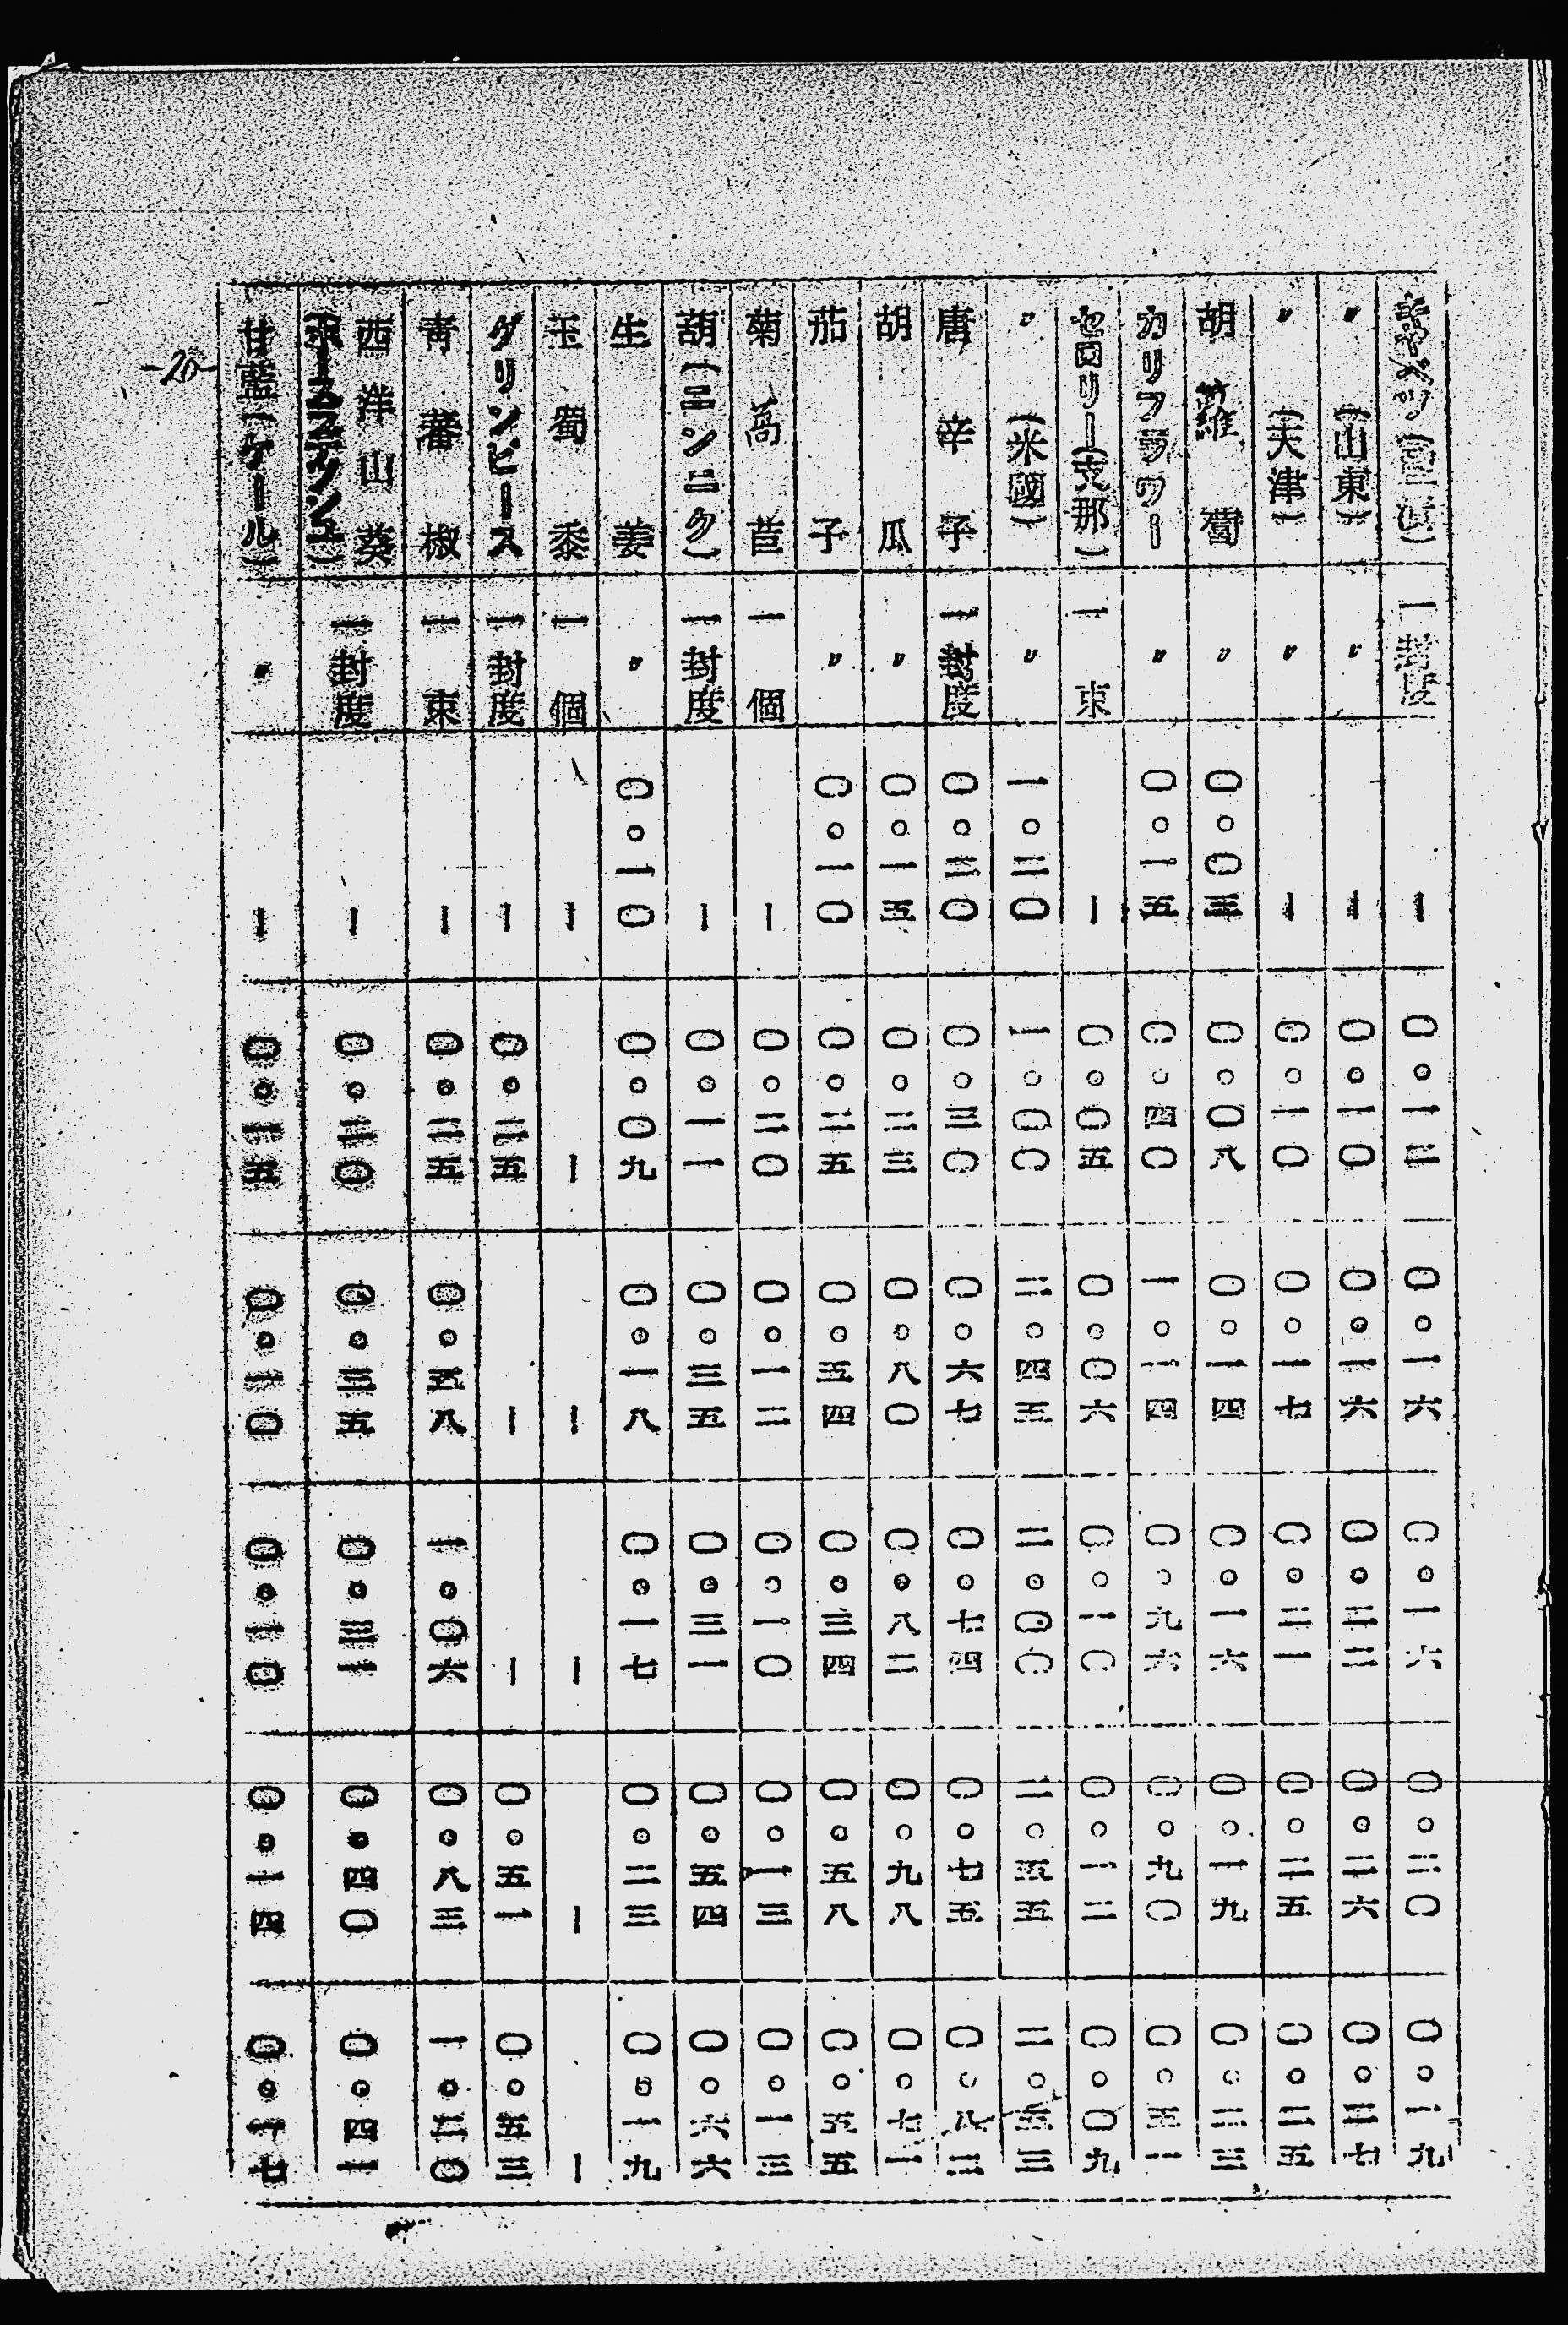 キャベツ（　　） 一封度 ｜ 〇。一二 〇。一六 〇。一六 〇。二〇 〇。一九
〃（山東） 〃 ｜ 〇。一〇 〇。一六 〇。二二 〇。二六 〇。二七
〃（天津） 〃 ｜ 〇。一〇 〇。一七 〇。二一 〇。二五 〇。二五
胡蘿蔔 〃 〇。〇三 〇。〇八 〇。一四 〇。一六 〇。一九 〇。二三
カリフラワー 〃 〇。一五 〇。四〇 一。一四 〇。九六 〇。九〇 〇。五一
セロリー（支那） 一束 ｜ 〇。〇五 〇。〇六 〇。一〇 〇。一二 〇。〇九
〃（米國） 〃 一。二〇 一。〇〇 二。四五 二。〇〇 二。五五 二。五三
唐辛子 一封度 〇。二〇 〇。三〇 〇。六七 〇。七四 〇。七五 〇。八二
胡瓜 〃 〇。一五 〇。二三 〇。八〇 〇。八二 〇。九八 〇。七一
茄子 〃 〇。一〇 〇。二五 〇。五四 〇。三四 〇。五八 〇。五五
菊萵苣 一個 ｜ 〇。二〇 〇。一二 〇。一〇 〇。一三 〇。一三
葫（ニンニク） 一封度 ｜ 〇。一一 〇。三五 〇。三一 〇。五四 〇。六六
生姜 〃 〇。一〇 〇。〇九 〇。一八 〇。一七 〇。二三 〇。一九
玉蜀黍 一個 ｜ ｜ ｜ ｜ ｜ ｜
グリンピース 一封度 ｜ 〇。二五 ｜ ｜ 〇。五一 〇。五三
青蕃椒 一束 ｜ 〇。二五 〇。五八 一。〇六 〇。八三 一。二〇
西洋山葵
（ホースラデツシュ） 一封度 ｜ 〇。三〇 〇。三五 〇。三一 〇。四〇 〇。四一
甘藍（ケール） 〃 ｜ 〇。一五 〇。二〇 〇。一〇 〇。一四 〇。一七
-20-